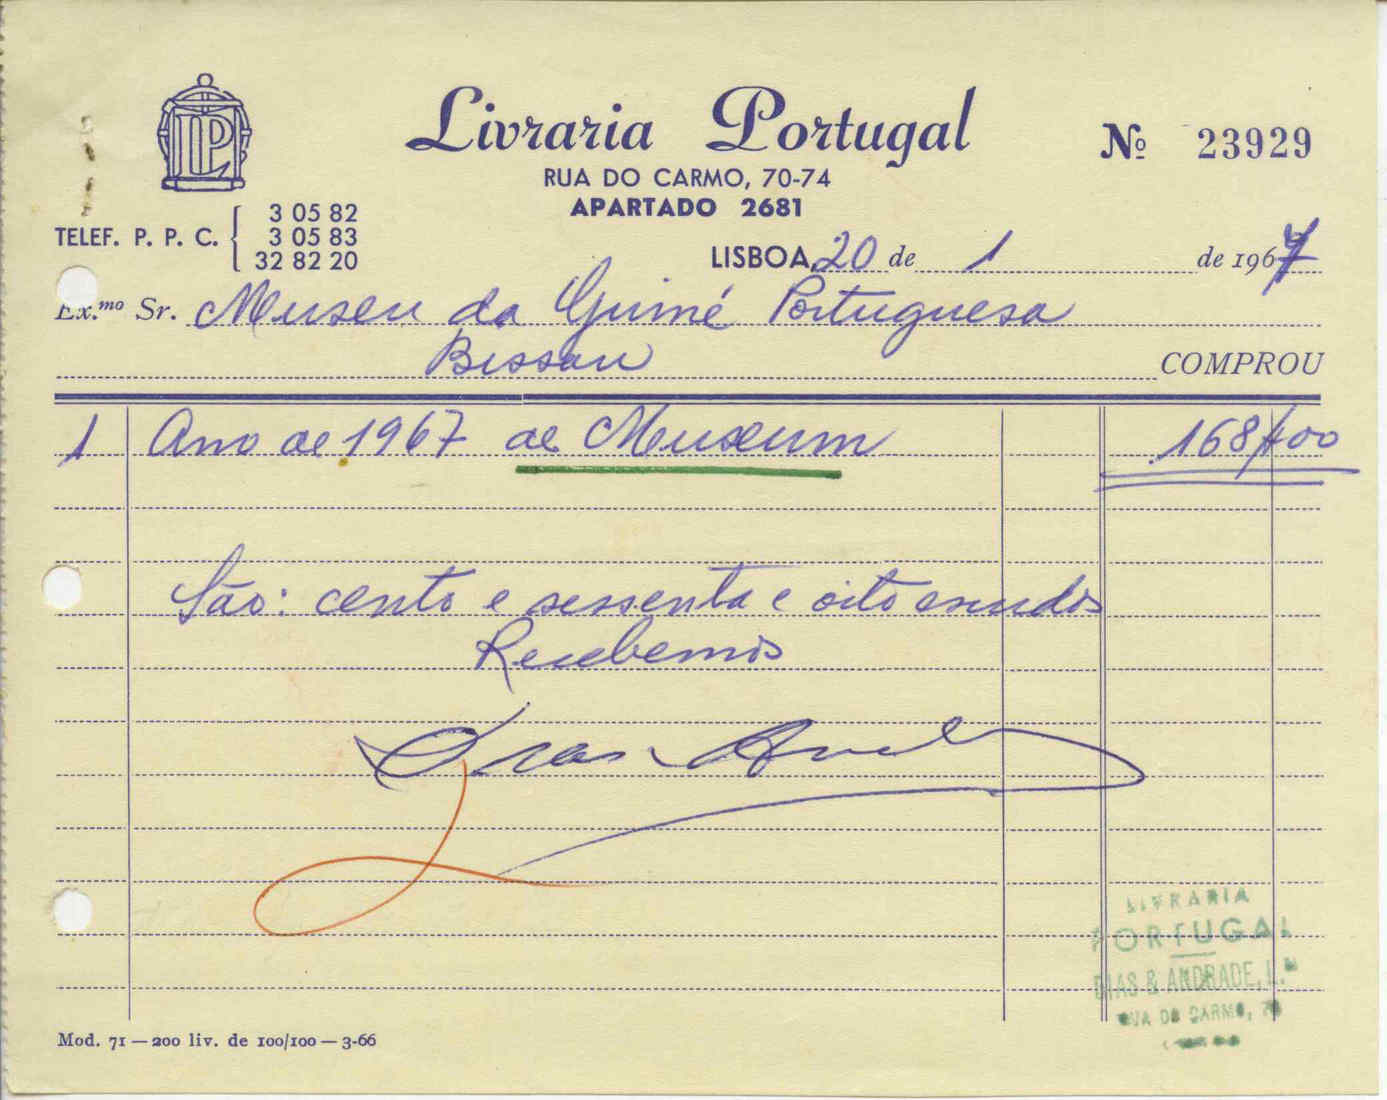 LP
Livraria Portugal
Nº 23929
RUA DO CARMO, 70-74
APARTADO 2681
TELEF. P. P. C. { 3 05 82
3 05 83
32 82 20
LISBOA, 20 de 1 de 1967
Ex.mo Sr. Museu da Guiné Portuguesa
Bissau COMPROU
1 Ano de 1967 de Museum 168$00
São: cento e sessenta e oito escudos
Recebemos
LIVRARIA
PORTUGAL
DIAS & ANDRADE, L.da
RUA DO CARMO, 70
Mod. 71 — 200 liv. de 100/100 — 3-66